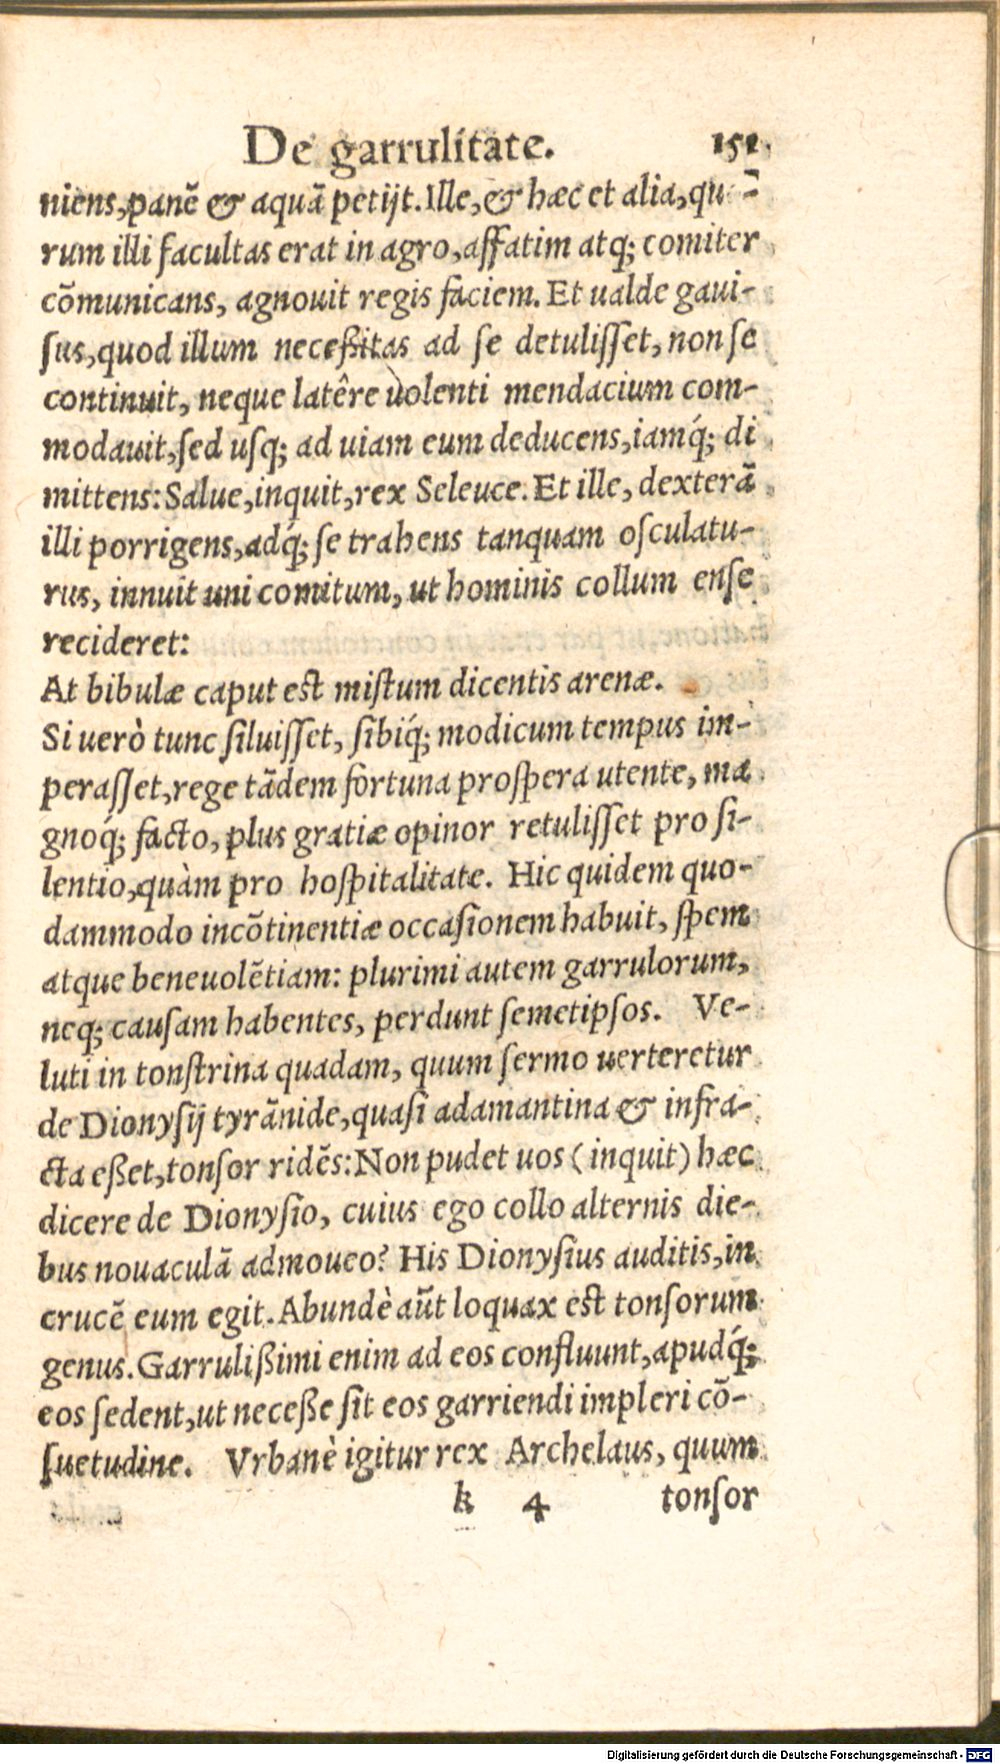 De garrulitate. 151.
niens,panē & aquā petijt. Ille, & hæc et alia,
rum illi facultas erat in agro, affatim atq; comiter
cōmunicans, agnouit regis faciem. Et ualde gaui-
sus, quod illum necessitas ad se detulisset, non se
continuit, neque latêre uolenti mendacium com-
modauit, sed usq; ad uiam eum deducens, iamq́; di
mittens: Salue, inquit, rex Seleuce. Et ille, dexterā
illi porrigens, adq́; se trahens tanquam osculatu-
rus, innuit uni comitum, ut hominis collum ense
recideret:
At bibulæ caput est mistum dicentis arenæ.
Si uerò tunc siluisset, sibiq́; modicum tempus im-
perasset, rege tādem fortuna prospera utente, ma
gnoq́; facto, plus gratiæ opinor retulisset pro si-
lentio, quàm pro hospitalitate. Hic quidem quo-
dammodo incōtinentiæ occasionem habuit, spem
atque beneuolētiam: plurimi autem garrulorum,
neq; causam habentes, perdunt semetipsos. Ve-
luti in tonstrina quadam, quum sermo uerteretur
de Dionysij tyrānide, quasi adamantina & infra-
cta eßet, tonsor ridēs: Non pudet uos (inquit) hæc
dicere de Dionysio, cuius ego collo alternis die-
bus nouaculā admoueo? His Dionysius auditis, in
crucē eum egit. Abundè aūt loquax est tonsorum
genus. Garrulißimi enim ad eos confluunt, apudq́;
eos sedent, ut neceße sit eos garriendi impleri cō-
suetudine. Vrbanè igitur rex Archelaus, quum
k 4 tonsor
Digitalisierung gefördert durch die Deutsche Forschungsgemeinschaft - DFG